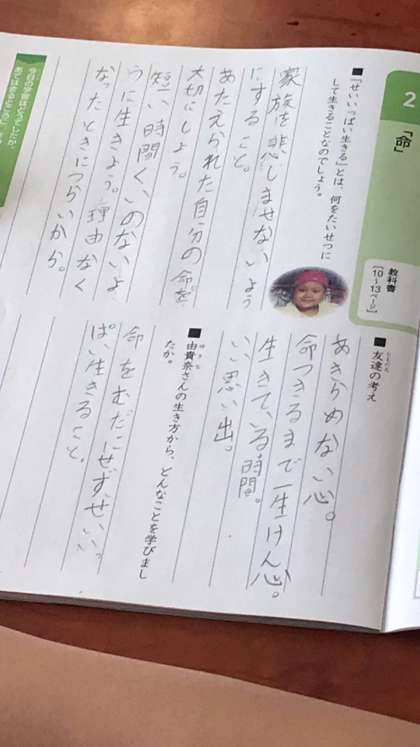 2
「命」
教科書
〔10~13ページ〕
■「せいいっぱい生きる」とは、何をたいせつに
して生きることなのでしょう。
家族を悲しませないよう
にすること。
あたえられた自分の命を
大切にしよう。
短い時間く、いのないよ
うに生きよう。理由なく
なったときにつらいから。
■友達の考え
ともだち
あきらめない心。
命つきるまで一生けん心。
生きている時間。
いい思い出。
■由貴奈さんの生き方から、どんなことを学びまし
ゆきな
たか。
命をむだにせず、せいいっ
ぱい生きること。
今日の学習はどうでしたか。